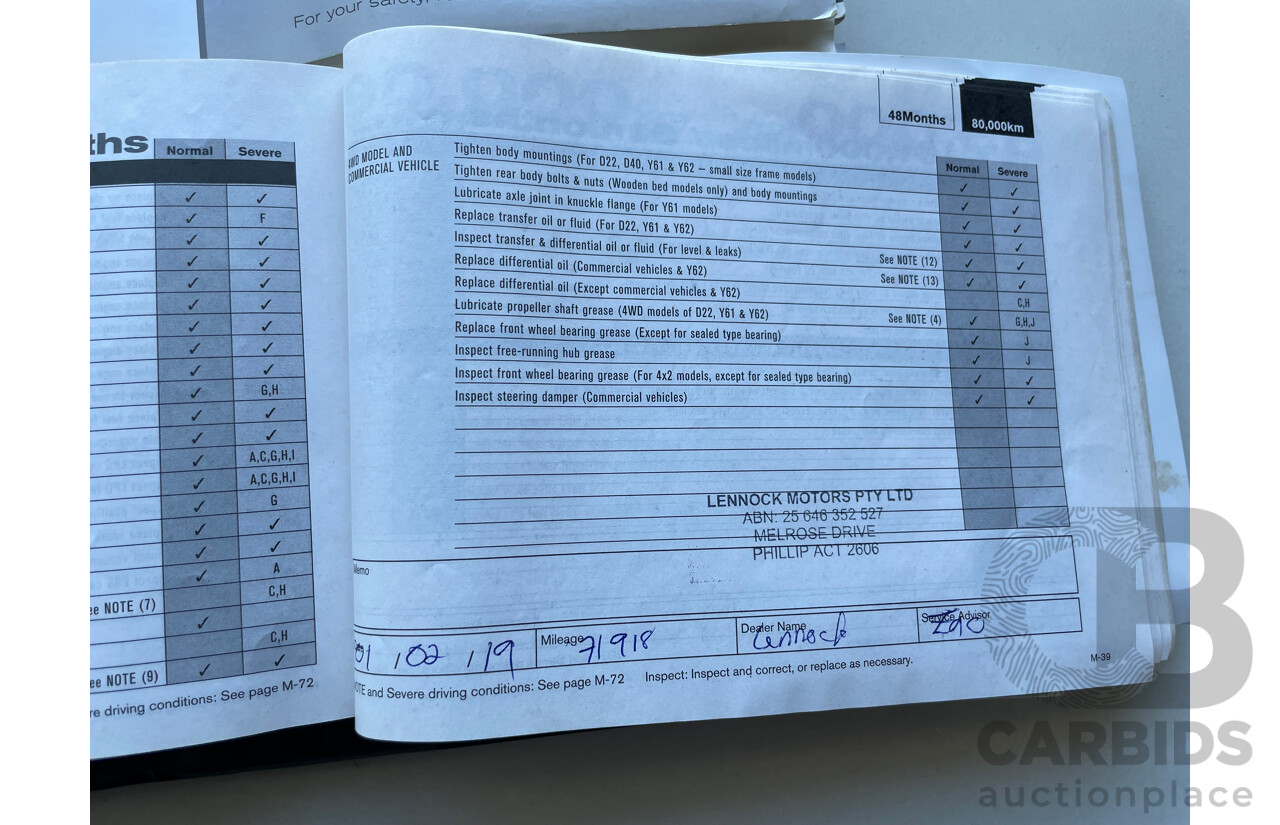 For your safety,
ths
Normal Severe
✓ ✓
✓ F
✓ ✓
✓ ✓
✓ ✓
✓ ✓
✓ ✓
✓ ✓
✓ ✓
✓ G,H
✓ ✓
✓ ✓
✓ A,C,G,H,I
✓ A,C,G,H,I
✓ G
✓ ✓
✓ ✓
✓ A
ee NOTE (7) C,H
✓
C,H
ee NOTE (9) ✓ ✓
re driving conditions: See page M-72
48Months 80,000km
4WD MODEL AND
COMMERCIAL VEHICLE
Normal Severe
Tighten body mountings (For D22, D40, Y61 & Y62 – small size frame models) ✓ ✓
Tighten rear body bolts & nuts (Wooden bed models only) and body mountings ✓ ✓
Lubricate axle joint in knuckle flange (For Y61 models) ✓ ✓
Replace transfer oil or fluid (For D22, Y61 & Y62) ✓ ✓
Inspect transfer & differential oil or fluid (For level & leaks) See NOTE (12) ✓ ✓
Replace differential oil (Commercial vehicles & Y62) See NOTE (13) ✓ ✓
Replace differential oil (Except commercial vehicles & Y62) C,H
Lubricate propeller shaft grease (4WD models of D22, Y61 & Y62) See NOTE (4) ✓ G,H,J
Replace front wheel bearing grease (Except for sealed type bearing) ✓ J
Inspect free-running hub grease ✓ J
Inspect front wheel bearing grease (For 4x2 models, except for sealed type bearing) ✓ ✓
Inspect steering damper (Commercial vehicles) ✓ ✓
LENNOCK MOTORS PTY LTD
ABN: 25 646 352 527
MELROSE DRIVE
PHILLIP ACT 2606
Memo
01 / 02 / 19 Mileage 71918 Dealer Name Lennock Service Advisor
OTE and Severe driving conditions: See page M-72 Inspect: Inspect and correct, or replace as necessary.
M-39
CB
CARBIDS
auctionplace